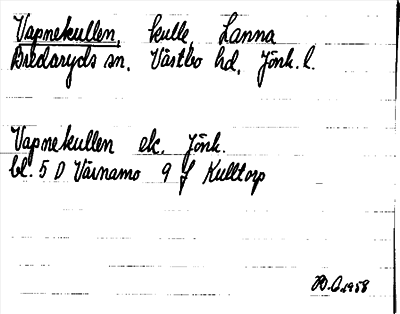 Vapnekullen, kulle, Lanna
Bredaryds sn. Västbo hd, Jönk. l.
Vapnekullen ek. Jönk.
bl. 5 D Värnamo 9 f Kulltorp
1958